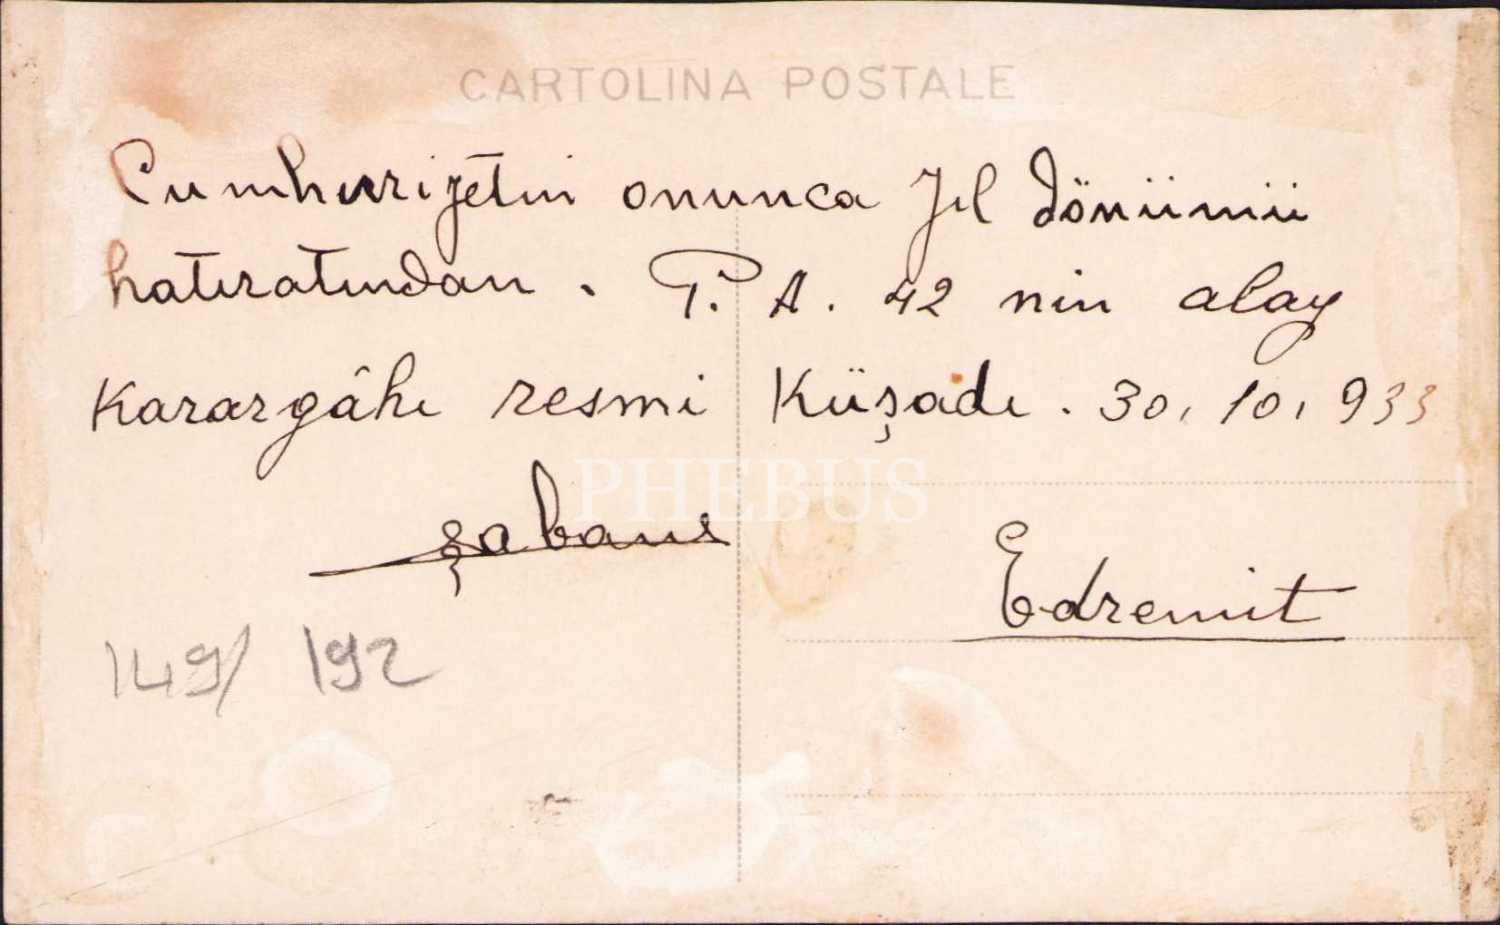 CARTOLINA POSTALE
Cumhuriyetin onunca Yıl dönümü
hatıratından. P. A. 42 nin alay
Karargâhı resmi Küşadı. 30. 10. 933
PHEBUS
Şaban
Edremit
149/ 192